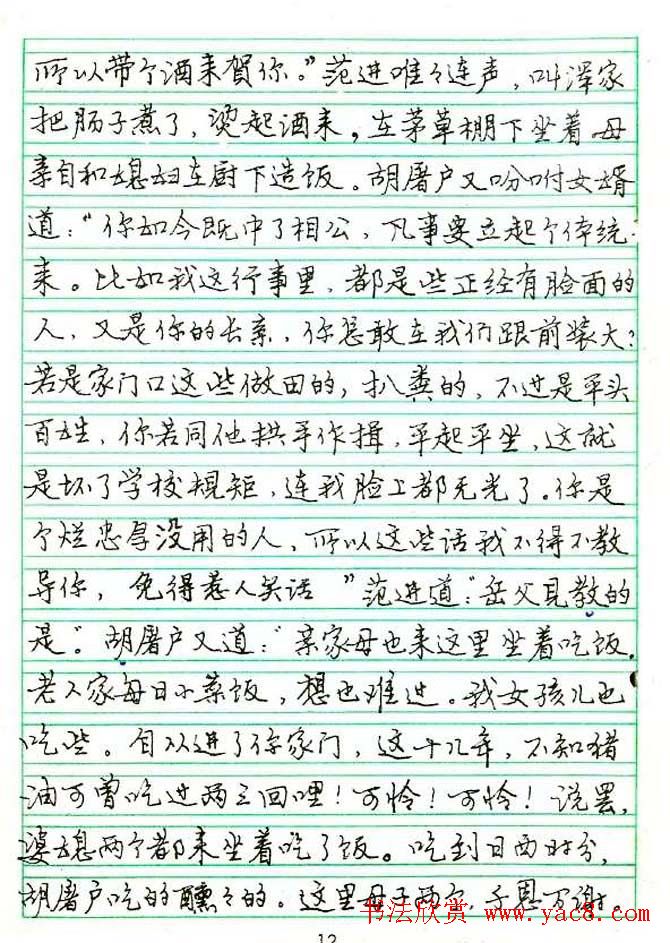 所以带个酒来贺你。”范进唯々连声，叫浑家
把肠子煮了，烫起酒来，在茅草棚下坐着。母
亲自和媳妇在厨下造饭。胡屠户又吩咐女婿
道：“你如今既中了相公，凡事要立起个体统
来。比如我这行事里，都是些正经有脸面的
人，又是你的长亲，你怎敢在我们跟前装大？
若是家门口这些做田的，扒粪的，不过是平头
百姓，你若同他拱手作揖，平起平坐，这就
是坏了学校规矩，连我脸上都无光了。你是
个烂忠厚没用的人，所以这些话我不得不教
导你，免得惹人笑话 ”范进道：“岳父见教的
是”。胡屠户又道：“亲家母也来这里坐着吃饭。
老人家每日小菜饭，想也难过。我女孩儿也
吃些。自从进了你家门，这十几年，不知猪
油可曾吃过两三回哩！可怜！可怜！说罢，
婆媳两个都来坐着吃了饭。吃到日西时分，
胡屠户吃的醺々的。这里母子两个，千恩万谢。
书法欣赏 www.yac8.com
12